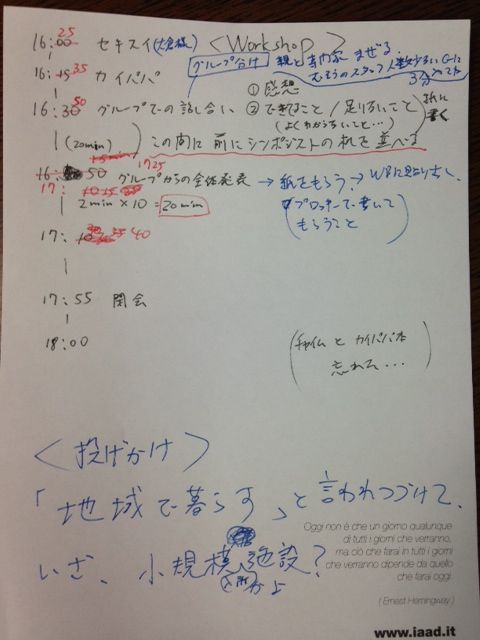 25
16:00 セキスイ(大倉様) <Workshop>
グループ分け 親と専門家 まぜる。
むそうのスタッフ 人数少ないGに
16:15 35 カイパパ ①感想 3分
16:30 50 グループでの話し合い ②できること/足りないこと 紙に書く
(よくわからないこと…)
(20min) この間に前にシンポジストの机を並べる
17:25
16:50 グループからの全体発表 → 紙をもらう。→ WBに貼り出し。
17:
2min × 10 = 20min プロッキーで書いてもらうこと
17:40
17:55 閉会
18:00
(チャイムとカイパパ本
忘れた…)
<投げかけ>
「地域で暮らす」と言われつづけて、
いざ、小規模施設?
かよ
Oggi non è che un giorno qualunque
di tutti i giorni che verranno,
ma ciò che farai in tutti i giorni
che verranno dipende da quello
che farai oggi.
( Ernest Hemingway )
www.iaad.it